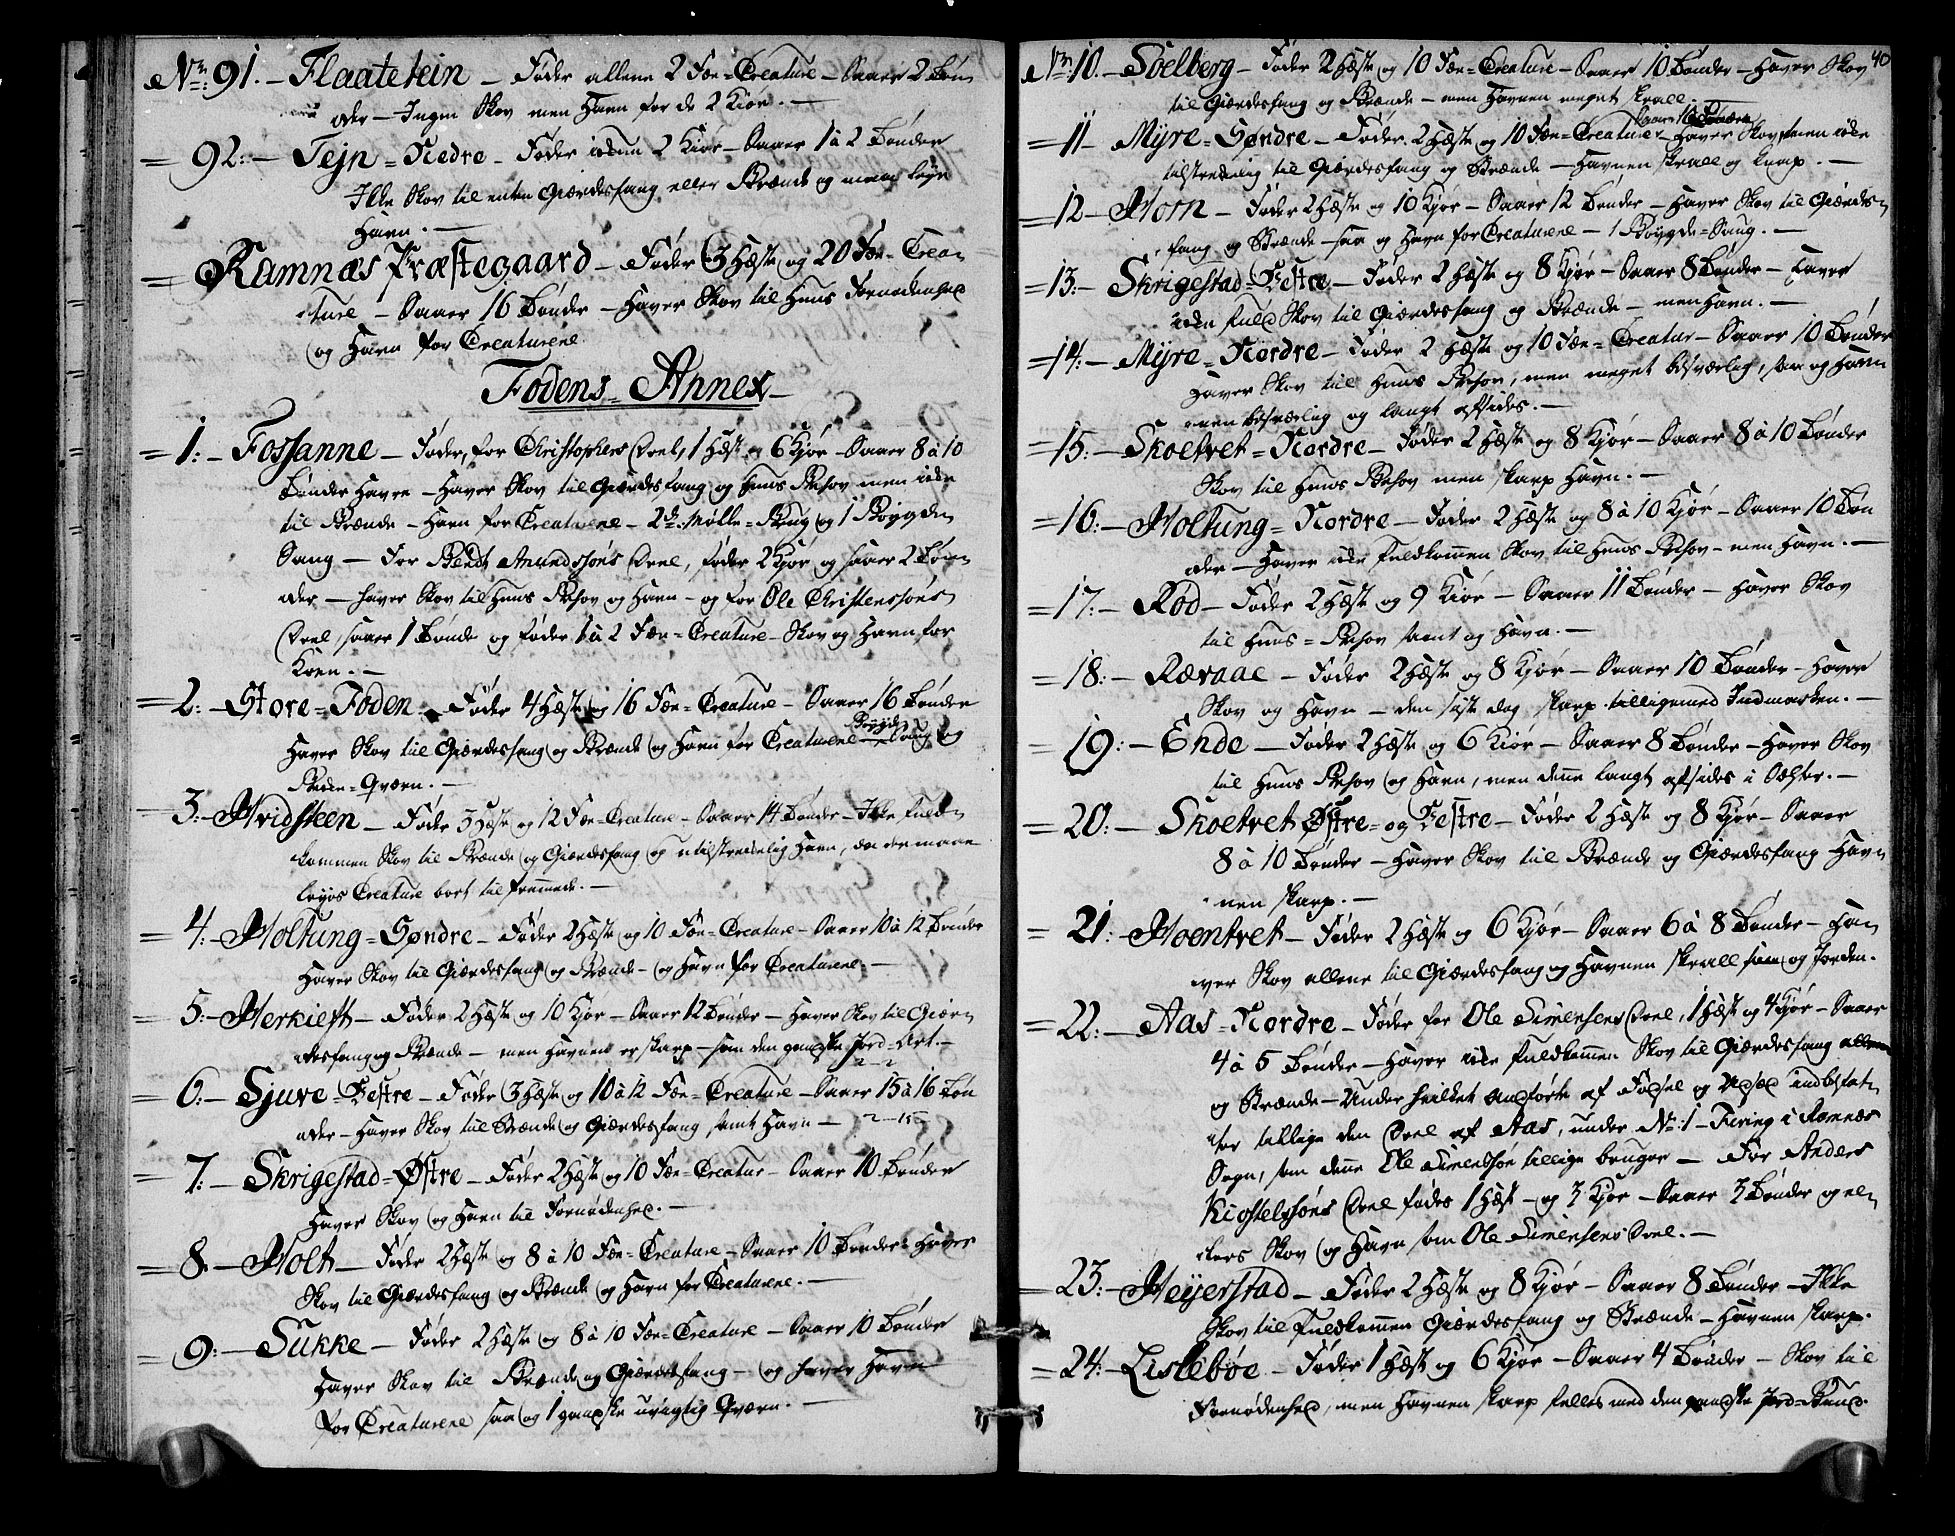 No: 91. – Flaatetein – Føder allene 2 Fæ-Creature – Saaer 2 Tøn-
der – Ingen Skov men Havn for de 2 Kiör. –
= 92: – Tejn-Nedre – Føder 2 Kiör – Saaer 1 à 2 Tønder
Ikke Skov til enten Giærdesfang eller Brænde og maae leye
Havn. –
= Ramnæs Præstegaard – Føder 3 Hæste og 20 Fæ-Crea-
ture – Saaer 16 Tønder – Haver Skov til Huus Fornødenhed
og Havn for Creaturene
Fodens-Annex
= 1: – Fossanne – Føder, for Christophers Deel, 1 Hæst og 6 Kjör – Saaer 8 à 10
Tønder Havre – Haver Skov til Giærdesfang og Huus Behov men ikke
til Brænde – Havn for Creaturene – 2de Mølle-Brug og 1 Bøygde-
Saug – For Bendt Amundssøns Deel, føder 2 Kjör og saaer 2 Tøn-
der – haver Skov til Huus Behov og Havn – og for Ole Christenssöns
Deel, saaer 1 Tønde og føder 1 à 2 Fæ-Creature – Skov og Havn for
Koen. –
= 2: – Store-Foden – Føder 4 Hæste og 16 Fæ-Creature – Saaer 16 Tønder
Haver Skov til Giærdesfang og Brænde og Havn for Creaturene – Bøygde Saug og
Qværn. –
3: – Hvidsteen – Føder 3 Hæste og 12 Fæ-Creature – Saaer 14 Tønder – Ikke fuld-
kommen Skov til Brænde og Giærdesfang og utilstrekkelig Havn, da der maae
leyes Creature bort til fremmede. –
= 4: – Holtung-Søndre – Føder 2 Hæste og 10 Fæ-Creature – Saaer 10 à 12 Tønder
Haver Skov til Giærdesfang og Brænde – og Havn for Creaturene –
= 5: – Herkieft – Føder 2 Hæste og 10 Kjör – Saaer 12 Tønder – Haver Skov til Giær-
desfang og Brænde – men Havnen er skarp – som den gandske Jord-Art. –
= 6: – Sjuve-Vestre – Føder 3 Hæste og 10 à 12 Fæ-Creature – Saaer 15 à 16 Tøn
der – Haver Skov til Brænde og Giærdesfang samt Havn –
= 7: – Skrigestad-Østre – Føder 2 Hæste og 10 Fæ-Creatur – Saaer 10 Tønder
Haver Skov og Havn til Fornødenhed. –
= 8: – Holt – Føder 2 Hæste og 8 à 10 Fæ-Creature – Saaer 10 Tønder – Haver
Skov til Giærdesfang og Brænde og Havn for Creaturene. –
= 9: – Sukke – Føder 2 Hæste og 8 à 10 Fæ-Creature – Saaer 10 Tønder
Haver Skov til Brænde og Giærdesfang – og haver Havn
for Creaturene saa og 1 gandske uvigtig Qværn. –
40
No: 10. – Solberg – Føder 2 Hæste og 10 Fæ-Creature – Saaer 10 Tønder – Haver Skov
til Giærdesfang og Brænde – men Havnen meget skrall. –
= 11 – Myre-Søndre – Føder 2 Hæste og 10 Fæ-Creature – Saaer 16 Tønder Haver Skov men ikke
tilstrekkelig til Giærdesfang og Brænde – Havnen skrall og knap. –
= 12 – Horn – Føder 2 Hæste og 10 Kjör – Saaer 12 Tønder – Haver Skov til Giærdes-
fang og Brænde – saa og Havn for Creaturene – 1 Bøygde-Saug. –
= 13: – Skrigestad-Vestre – Føder 2 Hæste og 8 Kjör – Saaer 8 Tønder – Haver
ikke fuld Skov til Giærdesfang og Brænde – men Havn. –
= 14: – Myre-Nordre – Føder 2 Hæste og 10 Fæ-Creatur – Saaer 10 Tønder
Haver Skov til Huus Behov, men meget besværlig, saa og Havn
men besværlig og langt afsides. –
= 15: – Skoetvet-Nordre – Føder 2 Hæste og 8 Kjör – Saaer 8 à 10 Tønder
Skov til Huus Behov men skarp Havn. –
= 16: – Holtung-Nordre – Føder 2 Hæste og 8 à 10 Kjör – Saaer 10 Tøn
der – Haver ikke fuldkommen Skov til Huus Behov – men Havn. –
= 17: – Rød – Føder 2 Hæste og 9 Kiör – Saaer 11 Tønder – Haver Skov
til Huus-Behov samt og Havn. –
= 18: – Rævaae – Føder 2 Hæste og 8 Kjör – Saaer 10 Tønder – Haver
Skov og Havn – den siste dog skarp tilligemed Indmarken. –
= 19: – Ende – Føder 2 Hæste og 6 Kiör – Saaer 8 Tønder – Haver Skov
til Huus Behov og Havn, men denne langt afsides i Sæter. –
= 20: – Skoetvet Østre- og Vestre – Føder 2 Hæste og 8 Kjör – Saaer
8 à 10 Tønder – Haver Skov til Brænde og Giærdesfang – Hav-
nen skarp. –
= 21: Hoentvet – Føder 2 Hæste og 6 Kjör – Saaer 6 à 8 Tønder – Ha-
ver Skov allene til Giærdesfang og Havnen skrall som og Jorden.
= 22: – Aas-Nordre – Føder for Ole Simensens Deel, 1 Hæst og 4 Kjör – Saaer
4 à 5 Tønder – Haver ikke fuldkommen Skov til Giærdesfang allene
og Brænde – Under hvilket anførte af Fødsel og Udsæd indbefat-
ter tillige den Deel af Aas, under No: 1 – i Ramnæs
Sogn, som denne Ole Simenssön tillige bruger – For Anders
Kiøstelssöns Deel fødes 1 Hæst – og 3 Kjör – Saaer 3 Tønder og el-
lers Skov og Havn som Ole Simensens Deel. –
= 23: – Heyerstad – Føder 2 Hæste og 8 Kjör – Saaer 8 Tønder – Ikke
Skov til fuldkommen Giærdesfang og Brænde – Havnen skarp.
= 24: – Lislebøe – Føder 1 Hæst og 6 Kjör – Saaer 4 Tønder – Skov til
Fornødenhed, men Havnen skarp felles med den gandske Jord-Bund.